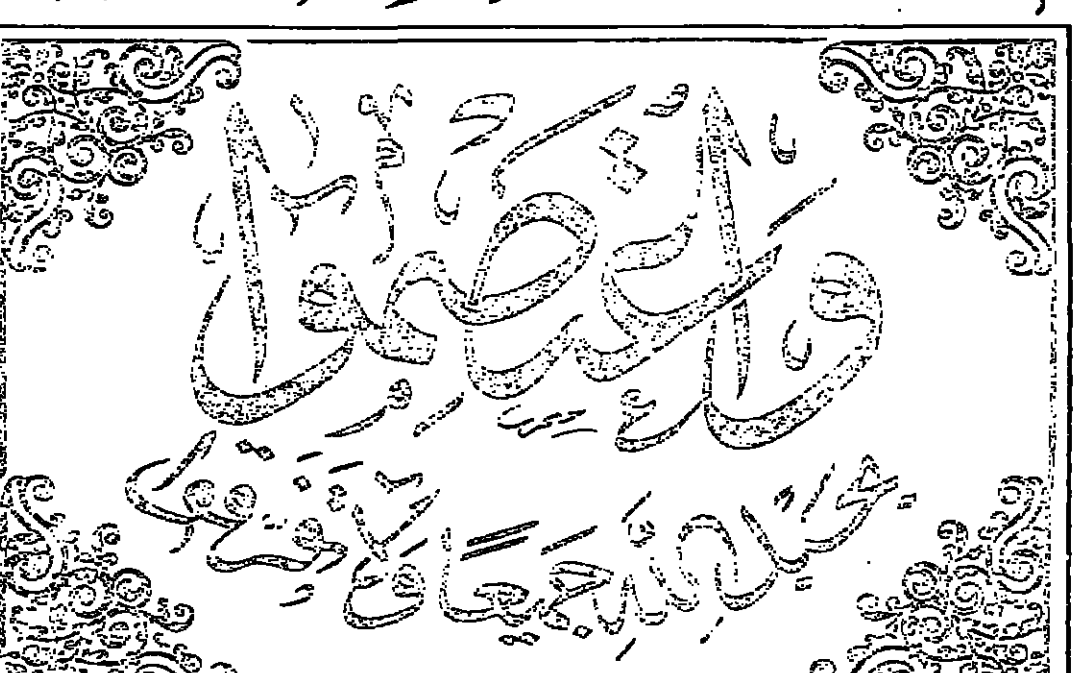 واعتصموا
بحبل الله جميعا ولا تفرقوا